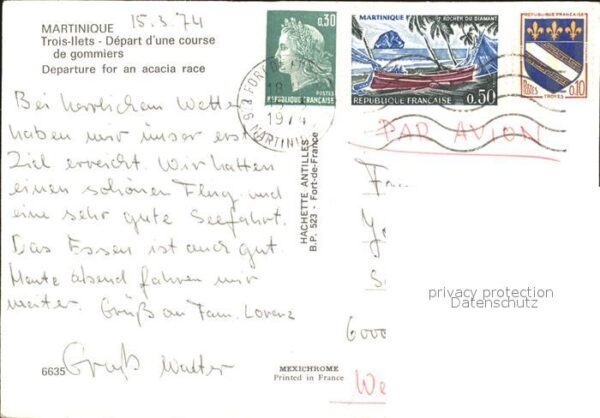 MARTINIQUE
15.3.74
Trois-Ilets - Départ d'une course
de gommiers
Departure for an acacia race
0,30
POSTES
REPUBLIQUE FRANÇAISE
MARTINIQUE
ROCHER DU DIAMANT
REPUBLIQUE FRANÇAISE
0,50
REPUBLIQUE FRANÇAISE
POSTES
TROYES
0,10
FORT DE
18
1974
MARTINIQUE
PAR AVION
Bei herrlichem Wetter
haben wir unser erstes
Ziel erreicht. Wir hatten
einen schönen Flug und
eine sehr gute Seefahrt.
Das Essen ist auch gut.
Heute abend fahren wir
weiter. Grüß an Fam. Lorenz
Gruß Walter
HACHETTE ANTILLES
B.P. 523 - Fort-de-France
6000
privacy protection
Datenschutz
6635
MEXICHROME
Printed in France